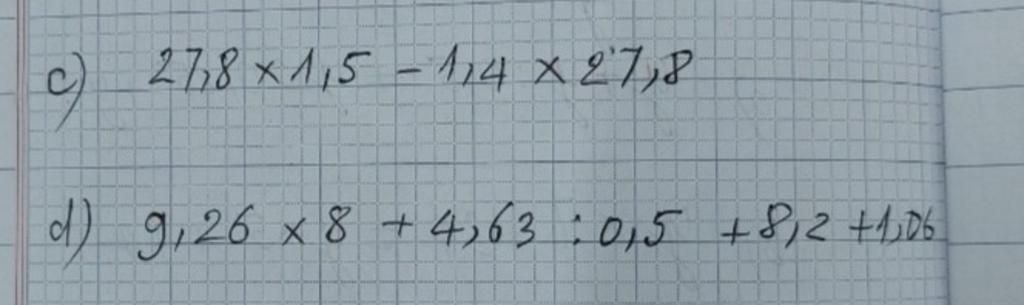 c) 27,8 × 1,5 - 1,4 × 27,8
d) 9,26 × 8 + 4,63 : 0,5 + 8,2 + 1,06